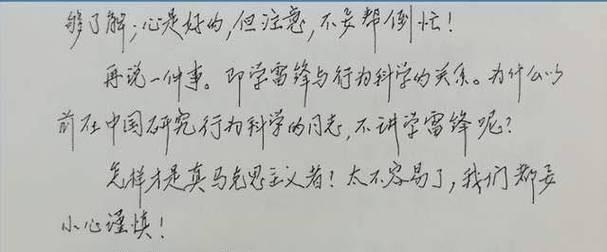 够了解；心是好的，但注意，不要帮倒忙！
再说一件事。即学雷锋与行为科学的关系。为什么以
前在中国研究行为科学的同志，不讲学雷锋呢？
怎样才是真马克思主义者！太不容易了，我们都要
小心谨慎！